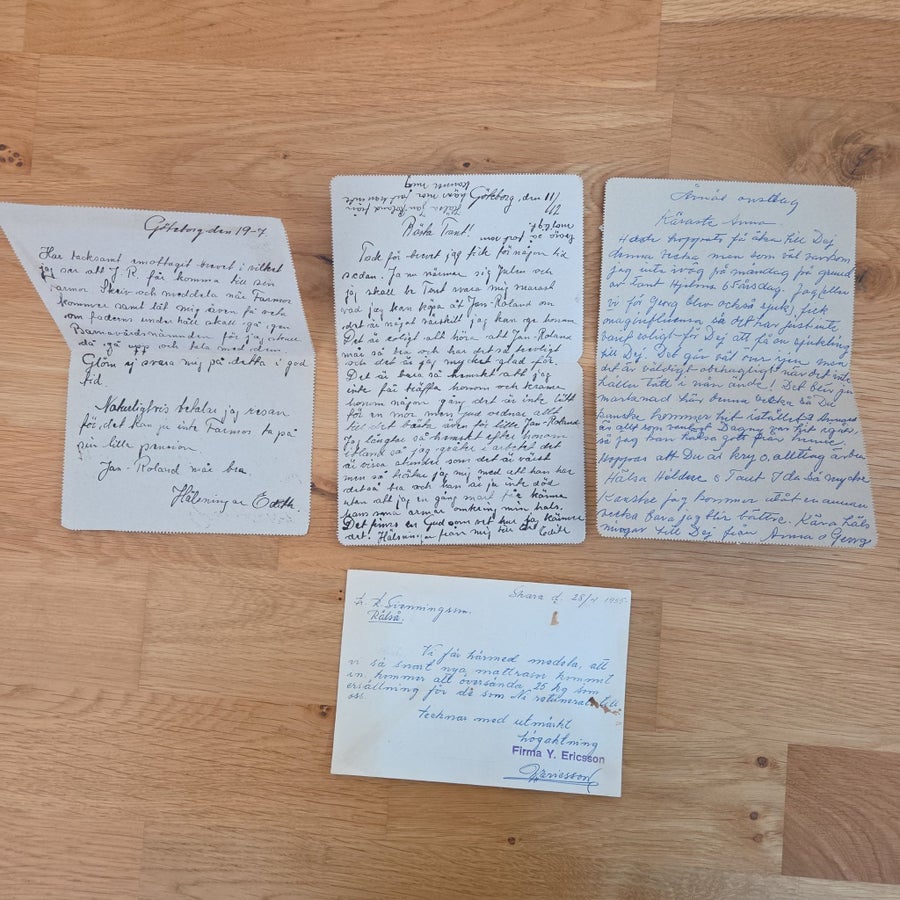 Göteborg den 19-7.
Har tacksamt emottaget brevet i vilket
jag ser att J. R får komma till sin
Farmor. Skriv och meddela när Farmor
kommer samt låt mig även få veta
om faderns underhåll skall gå igen
Barnavårdsnämnden för jag skall
då gå upp och tala med dem
Glöm ej svara mig på detta i god
tid.
Naturligtvis betalar jag resan
för, det kan ju inte Farmor ta på
sin lilla pension.
Jan-Roland mår bra
Hälsningar Edith.
Göteborg, den 11/12
Bästa Tant!
Tack för brevet jag fick för någon tid
sedan. Ja nu närmar sig Julen och
jag skall be Tant svara mig snarast
vad jag kan köpa åt Jan-Roland om
det är något särskilt jag kan ge honom
Det är roligt att höra att Jan-Roland
mår så bra och har det så trevligt
och det är jag mycket glad för.
Det är bara så hemskt att jag
inte får träffa honom och krama
honom någon gång det är inte lätt
för en mor men gud ordnar allt
till det bästa även för lille Jan-Roland
Jag längtar så hemskt efter honom
ibland så jag gråter i arbetet det
är vissa stunder som det är värst
men så tröstar jag mig med att han har
det så bra och han är ju inte död
utan att jag en gång snart får känna
hans små armar omkring min hals.
Det finns en Gud som vet hur jag känner
det! Hälsningar från mig Edith
Hälsa Jan Roland från
Årnäs onsdag
Käraste Anna.
Hade hoppats få åka till Dej
denna vecka men som väl varken
jag inte iväg på måndag på grund
av Tant Hjelms 65 årsdag. Jag
vi för Georg blev också sjuk, fick
maginfluensa så det har just inte
varit roligt för Dej att få en
till Dej. Det går väl över igen men
det är väldigt obehagligt när det inte
håller tätt i nån ände! Det blir ju
marknad här denna vecka så Du
kanske kommer hit istället. Annars
är allt som vanligt Dagny var hit igår,
så jag kan hälsa gott från henne
Hoppas att Du är kry o. allting är bra
Hälsa Hildur o Tant Ida så mycket
Kanske jag kommer ut en annan
vecka bara jag blir bättre. Kära häls
ningar till Dej från Anna o Georg
Skara d. 28/4 1955.
Hr. K Svenningson.
Rålså.
Vi får härmed medela, att
vi så snart nya mattrasor kommit
in, kommer att översända 25 kg som
ersättning för de som Ni returnerat till
oss.
Tecknar med utmärkt
högaktning
Firma Y. Ericsson
Y Ericsson